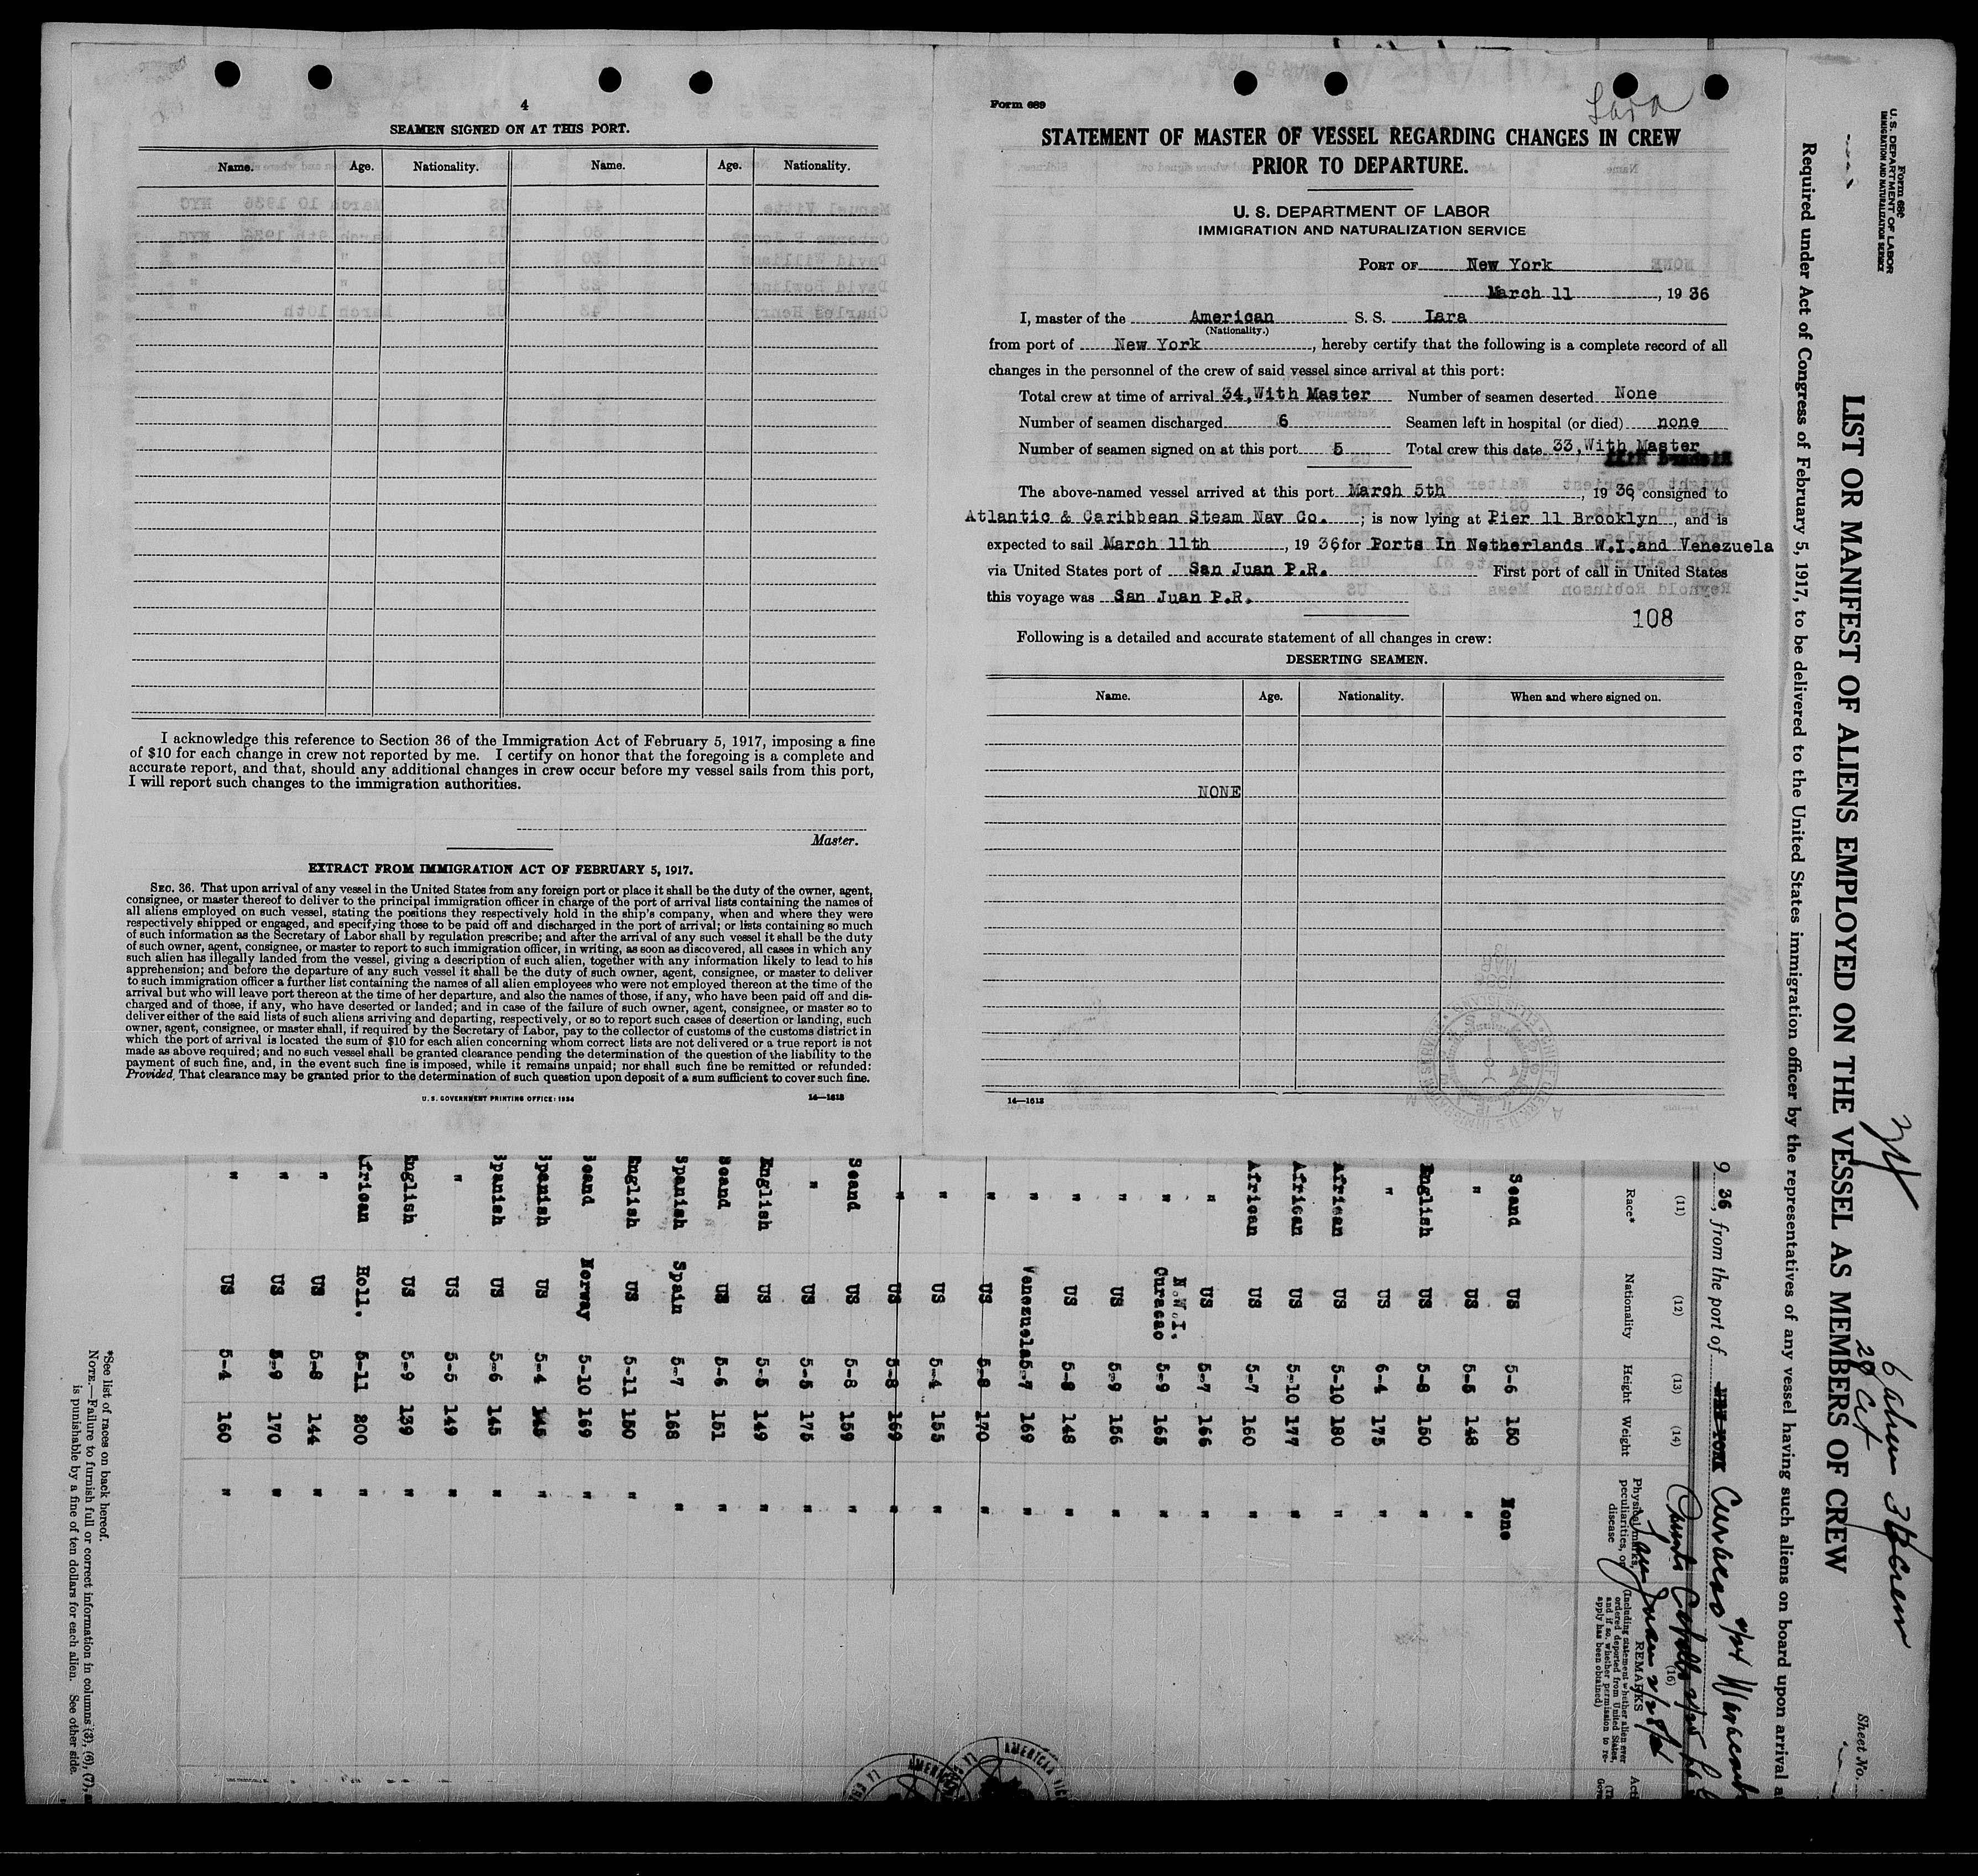 4
SEAMEN SIGNED ON AT THIS PORT.
Name. Age. Nationality. Name. Age. Nationality.
I acknowledge this reference to Section 36 of the Immigration Act of February 5, 1917, imposing a fine
of $10 for each change in crew not reported by me. I certify on honor that the foregoing is a complete and
accurate report, and that, should any additional changes in crew occur before my vessel sails from this port,
I will report such changes to the immigration authorities.
Master.
EXTRACT FROM IMMIGRATION ACT OF FEBRUARY 5, 1917.
SEC. 36. That upon arrival of any vessel in the United States from any foreign port or place it shall be the duty of the owner, agent,
consignee, or master thereof to deliver to the principal immigration officer in charge of the port of arrival lists containing the names of
all aliens employed on such vessel, stating the positions they respectively hold in the ship's company, when and where they were
respectively shipped or engaged, and specifying those to be paid off and discharged in the port of arrival; or lists containing so much
of such information as the Secretary of Labor shall by regulation prescribe; and after the arrival of any such vessel it shall be the duty
of such owner, agent, consignee, or master to report to such immigration officer, in writing, as soon as discovered, all cases in which any
such alien has illegally landed from the vessel, giving a description of such alien, together with any information likely to lead to his
apprehension; and before the departure of any such vessel it shall be the duty of such owner, agent, consignee, or master to deliver
to such immigration officer a further list containing the names of all alien employees who were not employed thereon at the time of the
arrival but who will leave port thereon at the time of her departure, and also the names of those, if any, who have been paid off and dis-
charged and of those, if any, who have deserted or landed; and in case of the failure of such owner, agent, consignee, or master so to
deliver either of the said lists of such aliens arriving and departing, respectively, or so to report such cases of desertion or landing, such
owner, agent, consignee, or master shall, if required by the Secretary of Labor, pay to the collector of customs of the customs district in
which the port of arrival is located the sum of $10 for each alien concerning whom correct lists are not delivered or a true report is not
made as above required; and no such vessel shall be granted clearance pending the determination of the question of the liability to the
payment of such fine, and, in the event such fine is imposed, while it remains unpaid; nor shall such fine be remitted or refunded:
Provided, That clearance may be granted prior to the determination of such question upon deposit of a sum sufficient to cover such fine.
U. S. GOVERNMENT PRINTING OFFICE: 1934 14—1613
Form 689
Lara
STATEMENT OF MASTER OF VESSEL REGARDING CHANGES IN CREW
PRIOR TO DEPARTURE.
U. S. DEPARTMENT OF LABOR
IMMIGRATION AND NATURALIZATION SERVICE
PORT OF New York
March 11, 1936
I, master of the American S. S. Lara
(Nationality.)
from port of New York, hereby certify that the following is a complete record of all
changes in the personnel of the crew of said vessel since arrival at this port:
Total crew at time of arrival 34, With Master Number of seamen deserted None
Number of seamen discharged 6 Seamen left in hospital (or died) none
Number of seamen signed on at this port 5 Total crew this date 33, With Master
The above-named vessel arrived at this port March 5th, 1936, consigned to
Atlantic & Caribbean Steam Nav Co.; is now lying at Pier 11 Brooklyn, and is
expected to sail March 11th, 1936 for Ports In Netherlands W.I. and Venezuela
via United States port of San Juan P.R. First port of call in United States
this voyage was San Juan P.R.
108
Following is a detailed and accurate statement of all changes in crew:
DESERTING SEAMEN.
Name. Age. Nationality. When and where signed on.
NONE
14—1613
Form 680
U. S. DEPARTMENT OF LABOR
IMMIGRATION AND NATURALIZATION SERVICE
LIST OR MANIFEST OF ALIENS EMPLOYED ON THE VESSEL AS MEMBERS OF CREW
Sheet No.
Required under Act of Congress of February 5, 1917, to be delivered to the United States immigration officer by the representatives of any vessel having such aliens on board upon arrival
9 36, from the port of Curacao
(11) (12) (13) (14) (16)
Race* Nationality Height Weight Physical marks, peculiarities, or disease REMARKS
(Including statement whether alien ever
ordered deported from United States,
and if so, whether permission to re-
apply has been obtained)
Scand US 5-6 150 None
" US 5-5 148 "
English US 5-8 150 "
" US 6-4 175 "
African US 5-10 180 "
African US 5-10 177 "
African US 5-7 160 "
" US 5-7 166 "
" N.W.I. Curacao 5-9 165 "
" US 5-9 156 "
" US 5-8 148 "
" Venezuela 5-7 169 "
" US 5-8 170 "
" US 5-4 155 "
" US 5-8 159 "
Scand US 5-8 159 "
" US 5-5 175 "
English US 5-5 149 "
Scand US 5-6 151 "
Spanish Spain 5-7 168 "
English US 5-11 150 "
Scand Norway 5-10 169 "
Spanish US 5-4 145 "
Spanish US 5-6 145 "
" US 5-5 149 "
English US 5-9 139 "
African Holl. 5-11 200 "
" US 5-8 144 "
" US 5-9 170 "
" US 5-4 160 "
*See list of races on back hereof.
NOTE.—Failure to furnish full or correct information in columns (3), (6), (7),
is punishable by a fine of ten dollars for each alien. See other side.